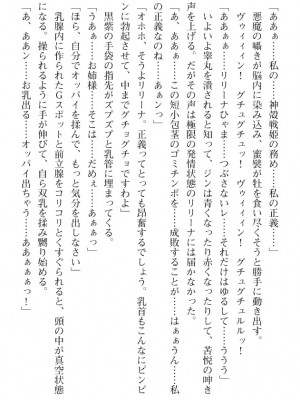 「あああ……私の……神殻戦姫の務め……私の正義……」
悪魔の囁きが脳内に染み込み、蜜襞が牡を食い尽くそうと勝手に動き出す。
ヴゥィィィン！　グチュグチュッ！　ヴゥィィィン！　グチュグチュルルッ！
「あああぁ……リリーナひゃまぁ……つぶさないレ……それだけはゆるしてぇ……」
いよいよ睾丸を潰されると知って、ジンは青くなったり赤くなったりして、苦悦の呻き
声を上げる。だがその声は極限の発情状態のリリーナには届かなかった。
「あ、ああン……この短小包茎のゴミチンポを……成敗することが……はぁぁうん……私
の正義なのね……あぁンっ」
「オホホ、そうよリリーナ。正義ってとっても昂奮するでしょう。乳首もこんなにピンピ
ンに勃起させて、中までグチョグチョですわよ」
黒紫の手袋の指先がズブズブと乳管に埋まってくる。
「うあぁ……お姉様ぁ……そこは……だめぇ……あぁぁっ」
「ほら、自分でオッパイを揉んで、もっと気分を出しなさい」
乳腺内に作られたGスポットと前立腺をコリコリとくすぐられると、頭の中が真空状態
になる。操られるように手が伸びて、自ら双乳を揉み嬲り始める。
「あ、ああン……お乳出る……オッパイ出ちゃう……ああぁぁぁっ！」